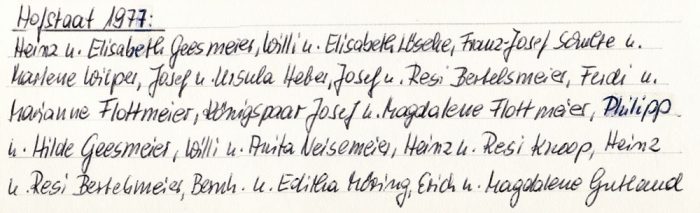 Hofstaat 1977:
Heinz u. Elisabeth Geesmeier, Willi u. Elisabeth Löseke, Franz-Josef Schulte u.
Marlene Wilper, Josef u. Ursula Heber, Josef u. Resi Bertelsmeier, Ferdi u.
Marianne Flottmeier, Königspaar Josef u. Magdalene Flottmeier, Philipp
u. Hilde Geesmeier, Willi u. Anita Neisemeier, Heinz u. Resi Knoop, Heinz
u. Resi Bertelsmeier, Bernh. u. Editha Möring, Erich u. Magdalene